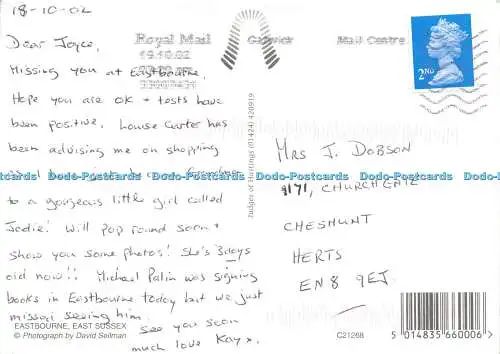 18-10-02
Dear Joyce,
Missing you at Eastbourne.
Hope you are OK + tests have
been positive. Louise Carter has
been advising me on shopping
to a gorgeous little girl called
Jodie! Will pop round soon +
show you some photos! She's 3days
old now!! Michael Palin was signing
books in Eastbourne today but we just
missed seeing him.
see you soon
much love Kay x.
EASTBOURNE, EAST SUSSEX
© Photograph by David Sellman
Judges of Hastings (01424) 420919
Royal Mail
Gatwick
Mail Centre
19.10.02
2ND
MRS J. DOBSON
171, CHURCHGATE
CHESHUNT
HERTS
EN8 9EJ.
C21268
5 014835 660006 >
Dodo-Postcards Dodo-Postcards Dodo-Postcards Dodo-Postcards Dodo-Postcards